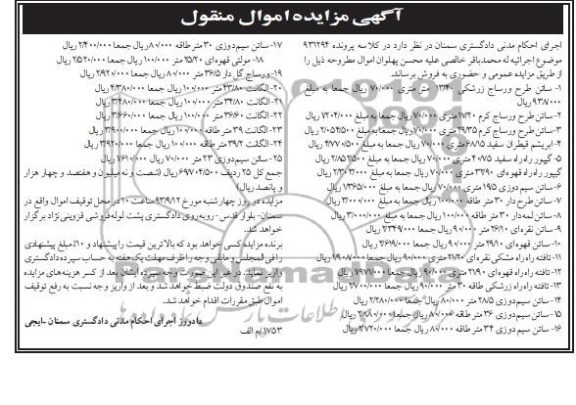 آگهی مزایده اموال منقول
اجرای احکام مدنی دادگستری سمنان در نظر دارد در کلاسه پرونده ۹۳۱۲۹۴
موضوع اجرائیه له محمدباقر خالصی علیه محسن پهلوان اموال مطروحه ذیل را
از طریق مزایده عمومی و حضوری به فروش برساند.
۱- ساتن طرح ورساچ زرشکی متر متری ۷۰/۰۰۰ ریال جمعا به مبلغ
۹۳۸/۰۰۰ ریال
۲- ساتن طرح ورساچ کرم ۱۷/۲۰ متری ۷۰/۰۰۰ ریال جمعا به مبلغ ۱/۲۰۴/۰۰۰ ریال
۳- ساتن طرح ورساچ کرم ۲۹/۳۵ متری ۷۰/۰۰۰ ریال جمعا به مبلغ ۲/۰۵۴/۵۰۰ ریال
۴- ابریشم قطران سفید ۶۸/۸۵ متری ۷۰/۰۰۰ ریال جمعا به مبلغ ریال
۵- گیپور راه راه سفید ۴۰/۷۵ متری ۷۰/۰۰۰ ریال جمعا به مبلغ ۲/۸۵۲/۵۰۰ ریال
گیپور راه راه قهوه‌ای متری ۷۰/۰۰۰ ریال جمعا به مبلغ ریال
۶- ساتن سیم دوزی ۱۹/۵ متری ۷۰/۰۰۰ ریال جمعا به مبلغ ۱/۳۶۵/۰۰۰ ریال
۷- ساتن طرح دار ۳۰ متر طاقه ۱۰۰/۰۰۰ ریال جمعا به مبلغ ۳/۰۰۰/۰۰۰ ریال
۸- ساتن لمه‌دار ۳۰ متر طاقه ۱۰۰/۰۰۰ ریال جمعا به مبلغ ۳/۰۰۰/۰۰۰ ریال
۹- ساتن نقره‌ای ۲۶/۱۰ متر ۹۰/۰۰۰ ریال جمعا ۲/۳۴۹/۰۰۰ ریال
۱۰- ساتن قهوه‌ای ۲۹/۱۰ متر ۹۰/۰۰۰ ریال جمعا ۲/۶۱۹/۰۰۰ ریال
۱۱- تافته راه راه مشکی نقره‌ای ۲۱/۲۰ متری ۹۰/۰۰۰ ریال جمعا ۱/۹۰۸/۰۰۰ ریال
۱۲- تافته راه راه قهوه‌ای ۲۱/۹۰ متری ۹۰/۰۰۰ ریال جمعا ۱/۹۷۱/۰۰۰ ریال
۱۳- تافته راه راه زرشکی طاقه ۳۰ متر ۹۰/۰۰۰ ریال جمعا ۲/۷۰۰/۰۰۰ ریال
۱۴- ساتن سیم دوزی ۲۸/۵ متر ۸۰/۰۰۰ ریال جمعا ۲/۲۸۰/۰۰۰ ریال
۱۵- ساتن سیم دوزی ۳۶ متر طاقه ۸۰/۰۰۰ ریال جمعا ۲/۸۸۰/۰۰۰ ریال
۱۶- ساتن سیم دوزی ۳۴ متر طاقه ۸۰/۰۰۰ ریال جمعا ۲/۷۲۰/۰۰۰ ریال
۱۷- ساتن سیم دوزی ۳۰ متر طاقه ۸۰/۰۰۰ ریال جمعا ۲/۴۰۰/۰۰۰ ریال
۱۸- مولتی قهوه‌ای ۲۵/۲۰ متر ۱۰۰/۰۰۰ ریال جمعا ۲/۵۲۰/۰۰۰ ریال
۱۹- ورساچ گل دار ۳۶/۵ متر ۸۰/۰۰۰ ریال جمعا ۲/۹۲۰/۰۰۰ ریال
۲۰- الگانت ۴۳/۸۰ متر ۱۰۰/۰۰۰ ریال جمعا ۴/۳۸۰/۰۰۰ ریال
۲۱- الگانت ۳۴/۸۰ متر ۱۰۰/۰۰۰ ریال جمعا ۳/۴۸۰/۰۰۰ ریال
۲۲- الگانت ۳۶/۶۰ متر ۱۰۰/۰۰۰ ریال جمعا ۳/۶۶۰/۰۰۰ ریال
۲۳- الگانت ۳۹ متر طاقه ۱۰۰/۰۰۰ ریال جمعا ۳/۹۰۰/۰۰۰ ریال
۲۴- الگانت ۳۹/۲ متر طاقه ۱۰۰/۰۰۰ ریال جمعا ۳/۹۲۰/۰۰۰ ریال
۲۵- ساتن سیم دوزی ۲۳ متر ۷۰/۰۰۰ ریال جمعا ۱/۶۱۰/۰۰۰ ریال
جمع کل ۲۵ ردیف ۶۹/۷۰۴/۵۰۰ ریال (شصت و نه میلیون و هفتصد و چهار هزار
و پانصد ریال)
مزایده در روز چهارشنبه مورخ ۹۳/۹/۱۲ ساعت ۱۰ در محل توقیف اموال واقع در
سمنان- بلوار قدس- روبه‌روی دادگستری پشت لوله فروشی قزوینی نژاد برگزار
خواهد شد.
برنده مزایده کسی خواهد بود که بالاترین قیمت را پیشنهاد و ۱۰٪ مبلغ پیشنهادی
را فی المجلس و مابقی وجه را ظرف مهلت یک هفته به حساب سپرده دادگستری
واریز نماید. در غیر این صورت وجه سپرده ایشان بعد از کسر هزینه‌های مزایده
به نفع صندوق دولت ضبط خواهد شد و بعد از واریز وجه نسبت به رفع توقیف
اموال طبق مقررات اقدام خواهد شد.
دادورز اجرای احکام مدنی دادگستری سمنان - ایجی
۱۷۵۳/م الف